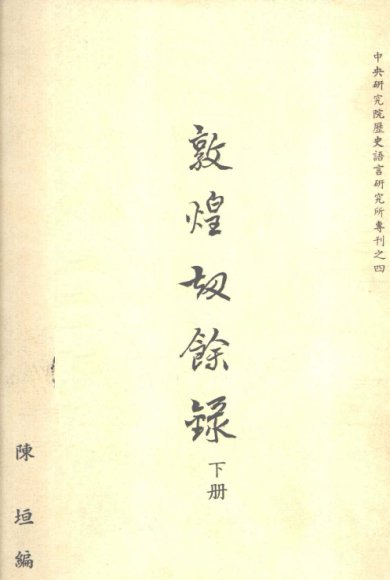 中央研究院歷史語言研究所專刊之四
敦煌劫餘錄
下册
陳垣編